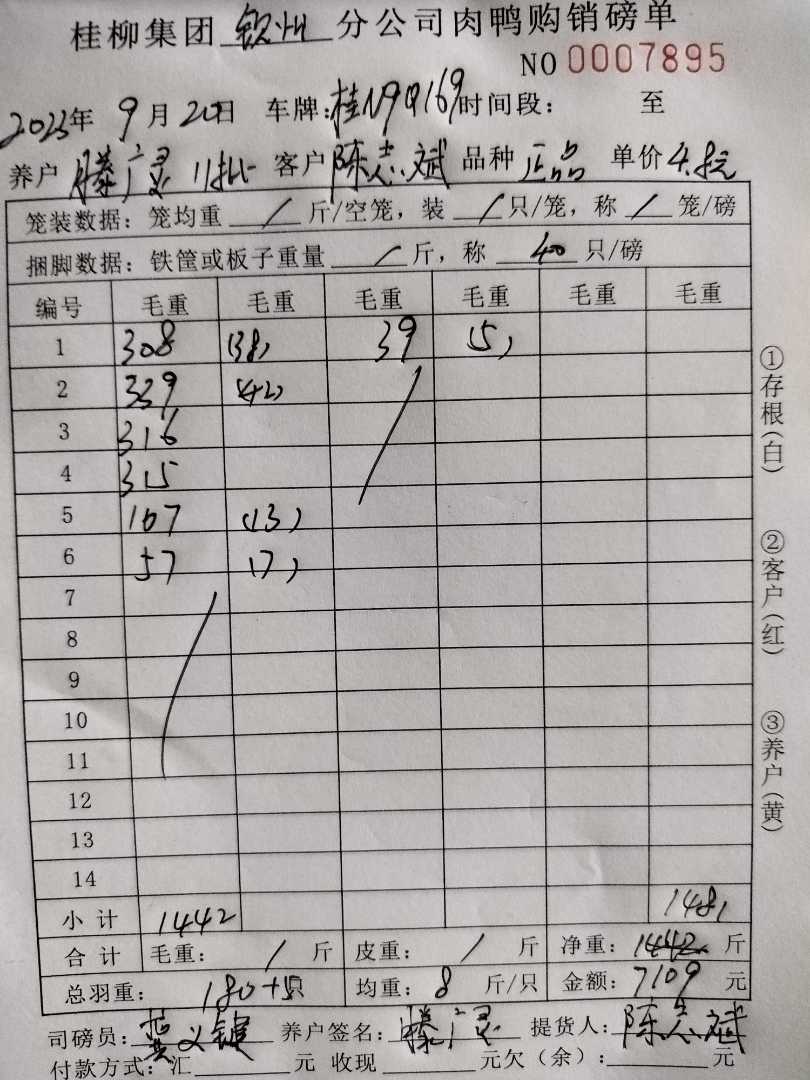 桂柳集团 钦州 分公司肉鸭购销磅单
NO 0007895
2023年 9月 20日 车牌:桂N9Q169 时间段: 至
养户 滕广灵 11批 客户 陈志斌 品种 正品 单价 4.8元
笼装数据: 笼均重 / 斤/空笼, 装 / 只/笼, 称 / 笼/磅
捆脚数据: 铁筐或板子重量 / 斤, 称 40 只/磅
编号 毛重 毛重 毛重 毛重 毛重 毛重
1 308 (38) 39 (5)
2 339 (42)
3 316
4 315
5 107 (13)
6 57 (7)
7
8
9
10
11
12
13
14
小计 1442 1481
合计 毛重: / 斤 皮重: / 斤 净重: 1442 斤
总羽重: 180+5只 均重: 8 斤/只 金额: 7109 元
司磅员: 黄义键 养户签名: 滕广灵 提货人: 陈志斌
付款方式: 汇 元 收现 元欠(余): 元
①存根(白)
②客户(红)
③养户(黄)